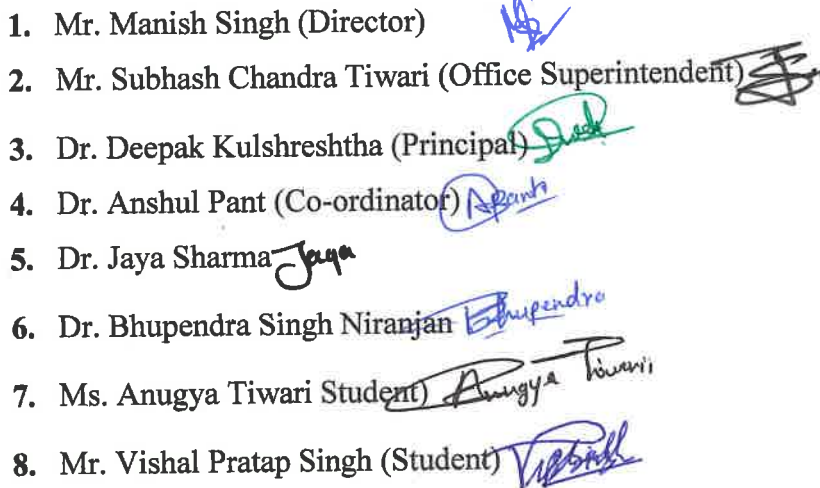 1. Mr. Manish Singh (Director)
2. Mr. Subhash Chandra Tiwari (Office Superintendent)
3. Dr. Deepak Kulshreshtha (Principal)
4. Dr. Anshul Pant (Co-ordinator) APant
5. Dr. Jaya Sharma Jaya
6. Dr. Bhupendra Singh Niranjan Bhupendra
7. Ms. Anugya Tiwari Student) Anugya Tiwari
8. Mr. Vishal Pratap Singh (Student)